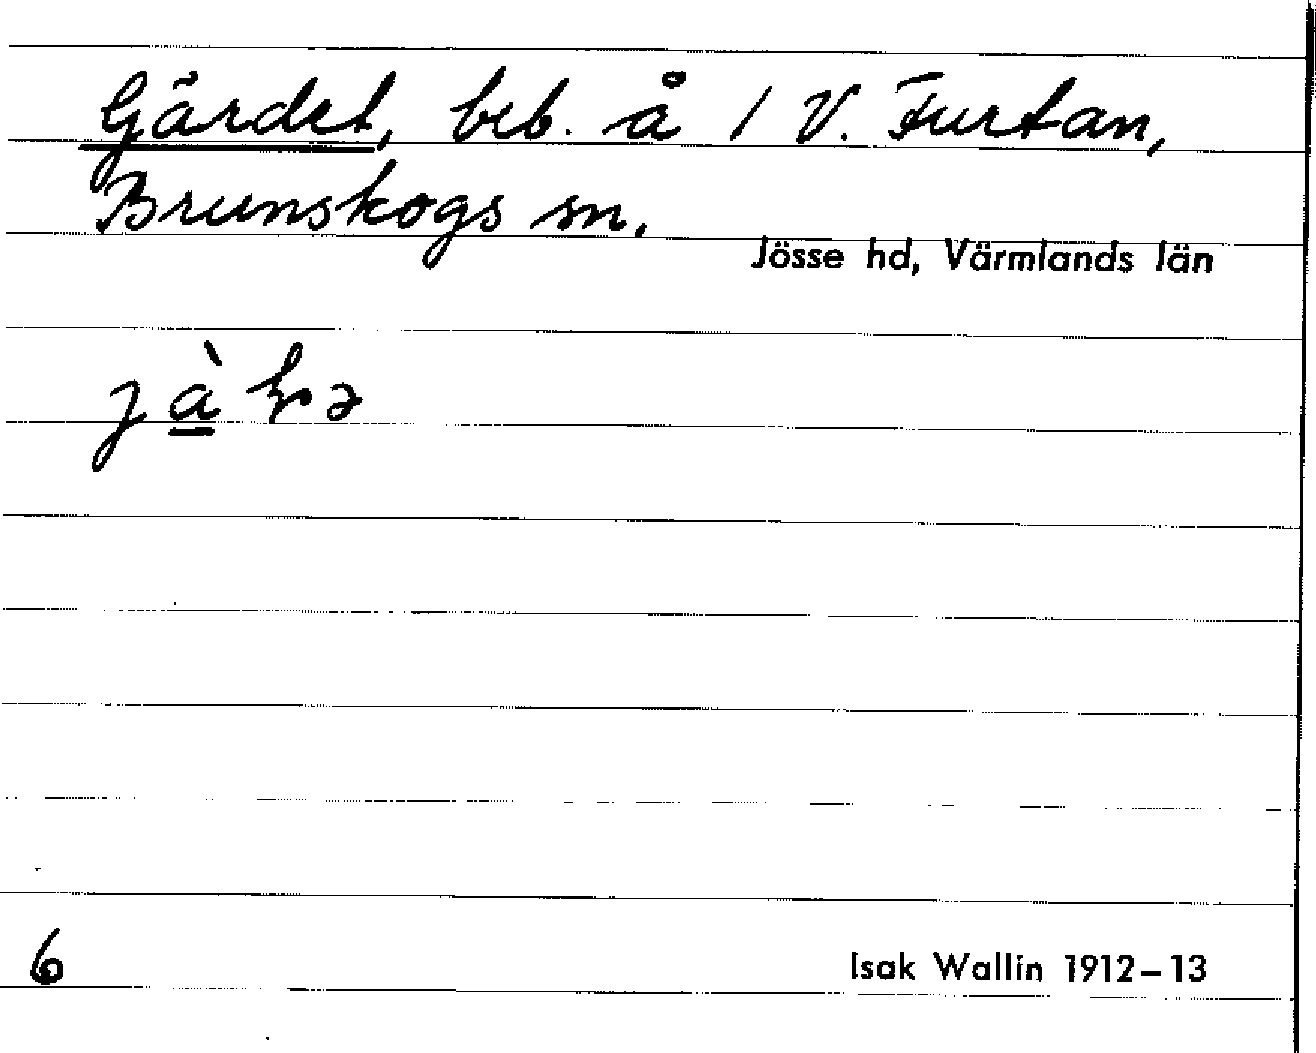 Gärdet, beb. å 1 V. Furtan,
Brunskogs sn.
Jösse hd, Värmlands län
6
Isak Wallin 1912–13